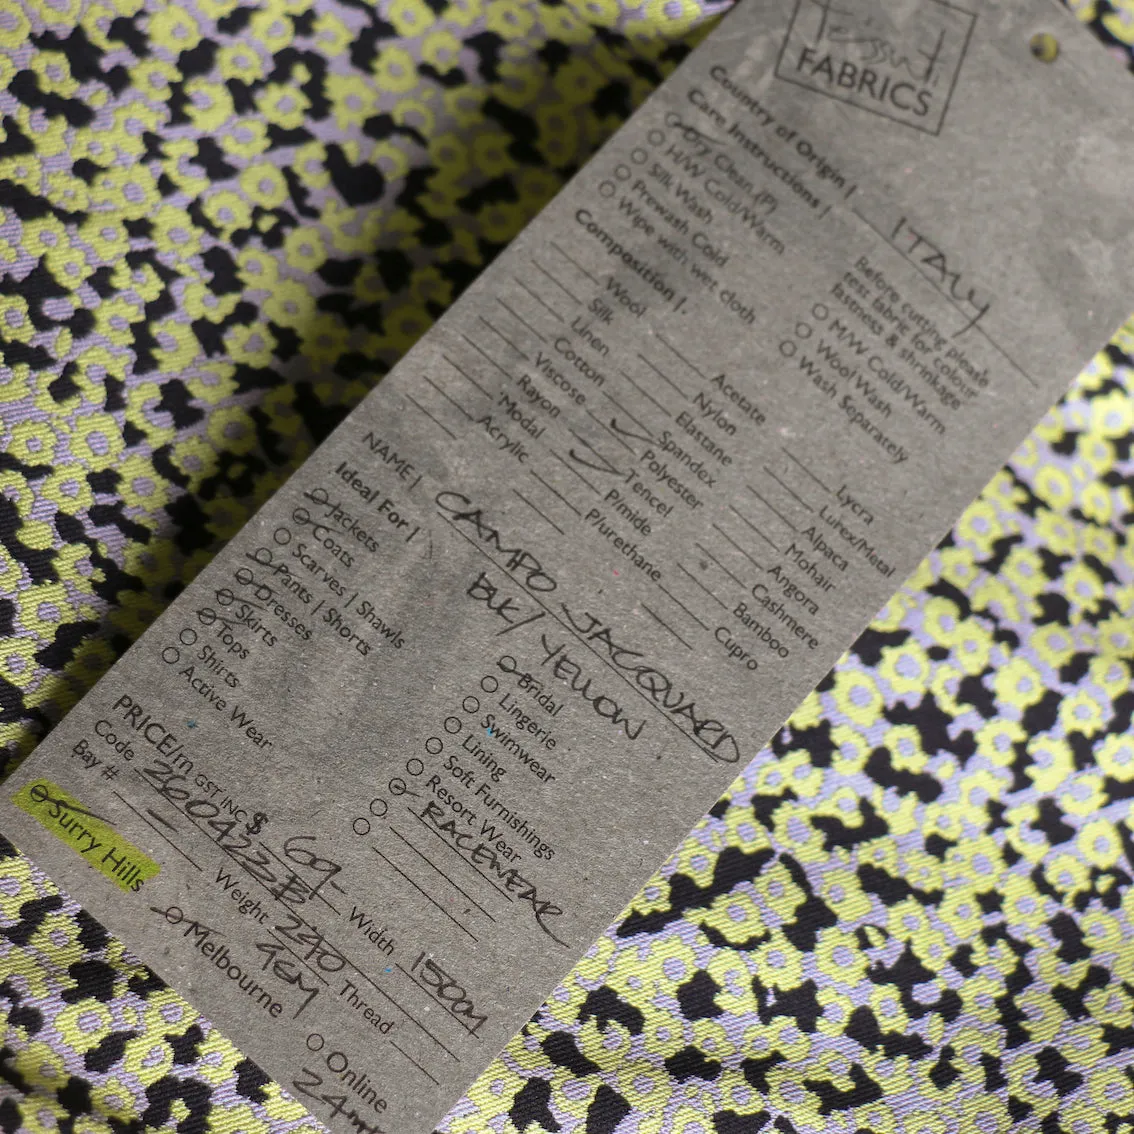 Tessuti
FABRICS
Country of Origin | ITALY
Care Instructions |
Dry Clean (P)
H/W Cold/Warm
Silk Wash
Prewash Cold
Wipe with wet cloth
Before cutting please
test fabric for colour
fastness & shrinkage
M/W Cold/Warm
Wool Wash
Wash Separately
Composition |
Wool
Silk
Linen
Cotton
Viscose
Rayon
Modal
Acrylic
Acetate
Nylon
Elastane
Spandex
Polyester
Tencel
P/mide
P/urethane
Lycra
Lurex/Metal
Alpaca
Mohair
Angora
Cashmere
Bamboo
Cupro
NAME | CAMPO JACQUARD
BLK/ YELLOW
Ideal For |
Jackets
Coats
Scarves | Shawls
Pants | Shorts
Dresses
Skirts
Tops
Shirts
Active Wear
Bridal
Lingerie
Swimwear
Lining
Soft Furnishings
Resort Wear
RACEWEAR
PRICE/m GST INC $ 69- Width 150cm
Code 260423B Weight 240 Thread
Bay #
Surry Hills
Melbourne
Online